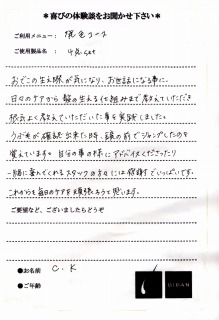 ＊喜びの体験談をお聞かせ下さい＊
ご利用メニュー： 脱毛コース
ご使用製品名： 4点set
おでこの生え際が気になり、お世話になる事に。
日々のケアから髪の生える仕組みまで教えていただき
根気よく教えていただいた事を実践しました。
うぶ毛が確認出来た時、鏡の前でジャンプしたのを
覚えています。自分の事の様にアドバイスくださったり
一緒に喜んでくれるスタッフの方々には感謝でいっぱいです。
これからも毎日のケアを頑張ろうと思います。
ご要望など、ございましたらどうぞ
●お名前 C.K
●ご年齢